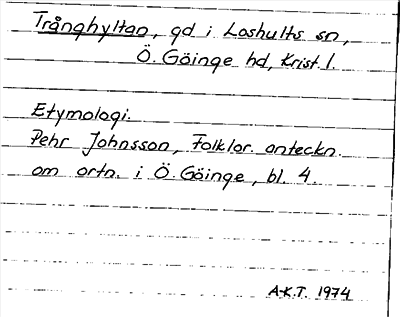 Trånghyltan, gd i Loshults sn,
Ö. Göinge hd, Krist. l.
Etymologi.
Pehr Johnsson, Folklor. anteckn.
om ortn. i Ö. Göinge, bl. 4.
A-K.T. 1974